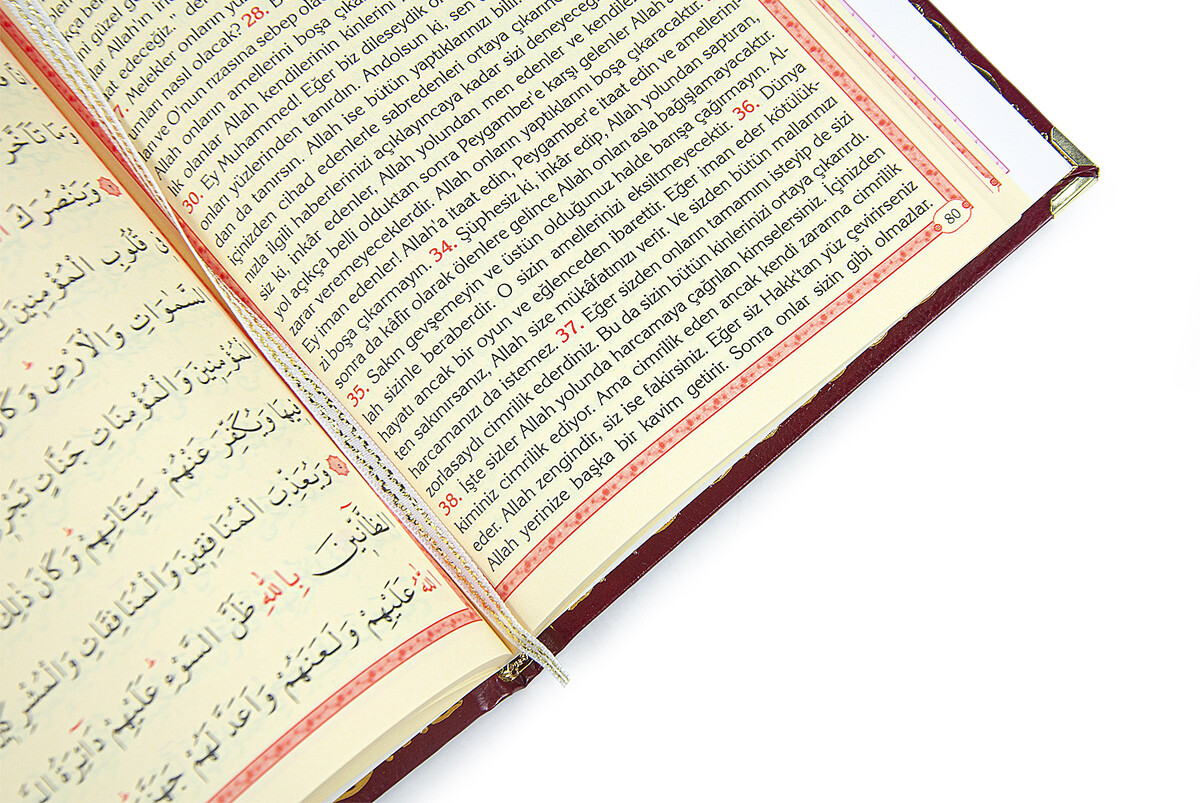 ni güzel
Allah'ın
at edeceğiz.,,
Melekler onların
umları nasıl olacak? 28.
ve O'nun rızasına sebep
Allah onların amellerini boşa
lik olanlar Allah kendilerinin kinlerini
30. Ey Muhammed! Eğer biz dileseydik
onları yüzlerinden tanırdın. Andolsun ki, sen
dan da tanırsın. Allah ise bütün yaptıklarınızı
içinizden cihad edenlerle sabredenleri ortaya
nızla ilgili haberlerinizi açıklayıncaya kadar sizi
siz ki, inkâr edenler, Allah yolundan men edenler ve
yol açıkça belli olduktan sonra Peygamber'e karşı gelenler
zarar veremeyeceklerdir. Allah onların yaptıklarını boşa çıkaracaktır.
Ey iman edenler! Allah'a itaat edin, Peygamber'e itaat edin ve amellerini-
zi boşa çıkarmayın. 34. Şüphesiz ki, inkâr edip, Allah yolundan saptıran,
sonra da kâfir olarak ölenlere gelince Allah onları asla bağışlamayacaktır.
35. Sakın gevşemeyin ve üstün olduğunuz halde barışa çağırmayın. Al-
lah sizinle beraberdir. O sizin amellerinizi eksiltmeyecektir. 36. Dünya
hayatı ancak bir oyun ve eğlenceden ibarettir. Eğer iman eder kötülük-
ten sakınırsanız, Allah size mükâfatınızı verir. Ve sizden bütün mallarınızı
harcamanızı da istemez. 37. Eğer sizden onların tamamını isteyip de sizi
zorlasaydı cimrilik ederdiniz. Bu da sizin bütün kinlerinizi ortaya çıkarırdı.
38. İşte sizler Allah yolunda harcamaya çağrılan kimselersiniz. İçinizden
kiminiz cimrilik ediyor. Ama cimrilik eden ancak kendi zararına cimrilik
eder. Allah zengindir, siz ise fakirsiniz. Eğer siz Hakk'tan yüz çevirirseniz
Allah yerinize başka bir kavim getirir. Sonra onlar sizin gibi olmazlar.
80
وَيَنْصُرَكَ
قُلُوبِ الْمُؤْمِنِينَ
السَّمٰوَاتِ وَالْاَرْضِ وَكَانَ
الْمُؤْمِنِينَ وَالْمُؤْمِنَاتِ جَنَّاتٍ
فِيهَا وَيُكَفِّرَ عَنْهُمْ سَيِّئَاتِهِمْ وَكَانَ ذٰلِكَ
وَيُعَذِّبَ الْمُنَافِقِينَ وَالْمُنَافِقَاتِ
الظَّٓانِّينَ بِاللّٰهِ ظَنَّ السَّوْءِ عَلَيْهِمْ دَٓائِرَةُ
اللّٰهُ عَلَيْهِمْ وَلَعَنَهُمْ وَاَعَدَّ لَهُمْ جَهَنَّمَ